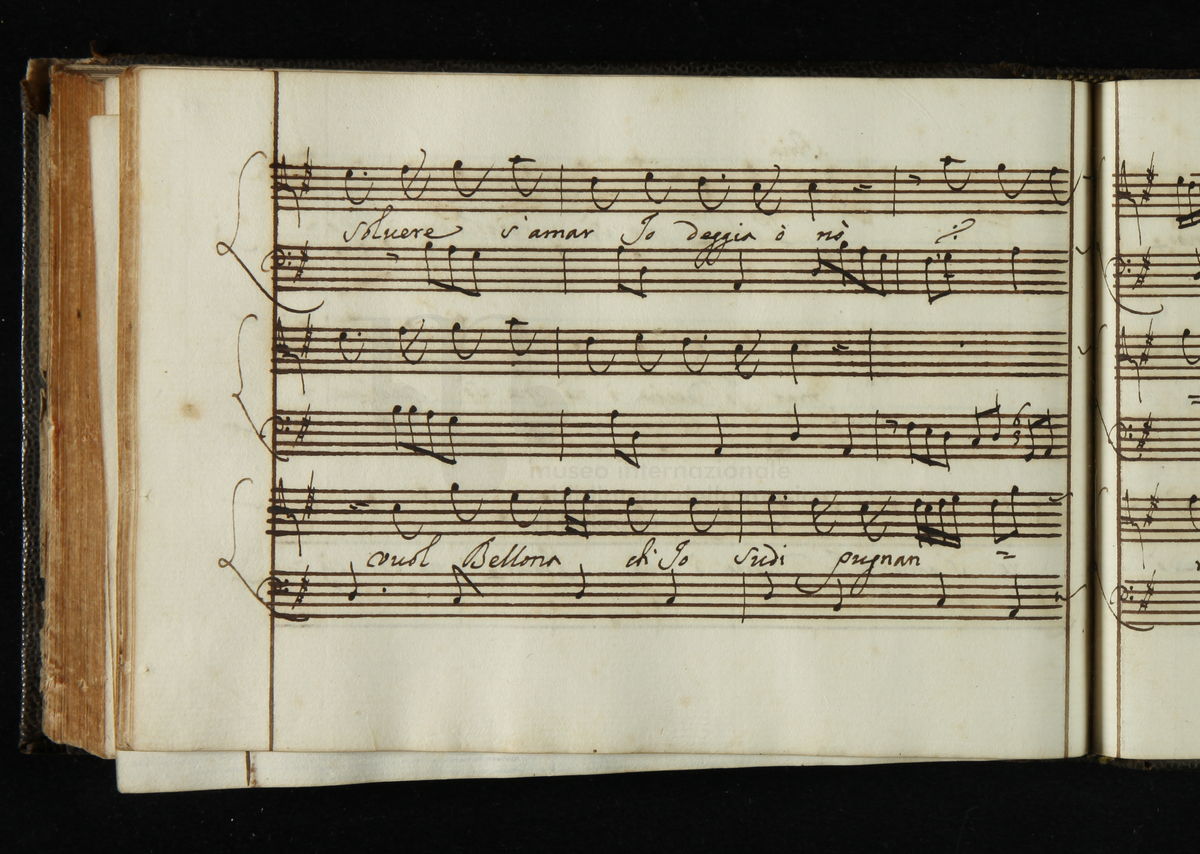 soluere s'amar Io deggia ò nò
museo internazionale
vuol Bellona ch'Io sudi pugnan